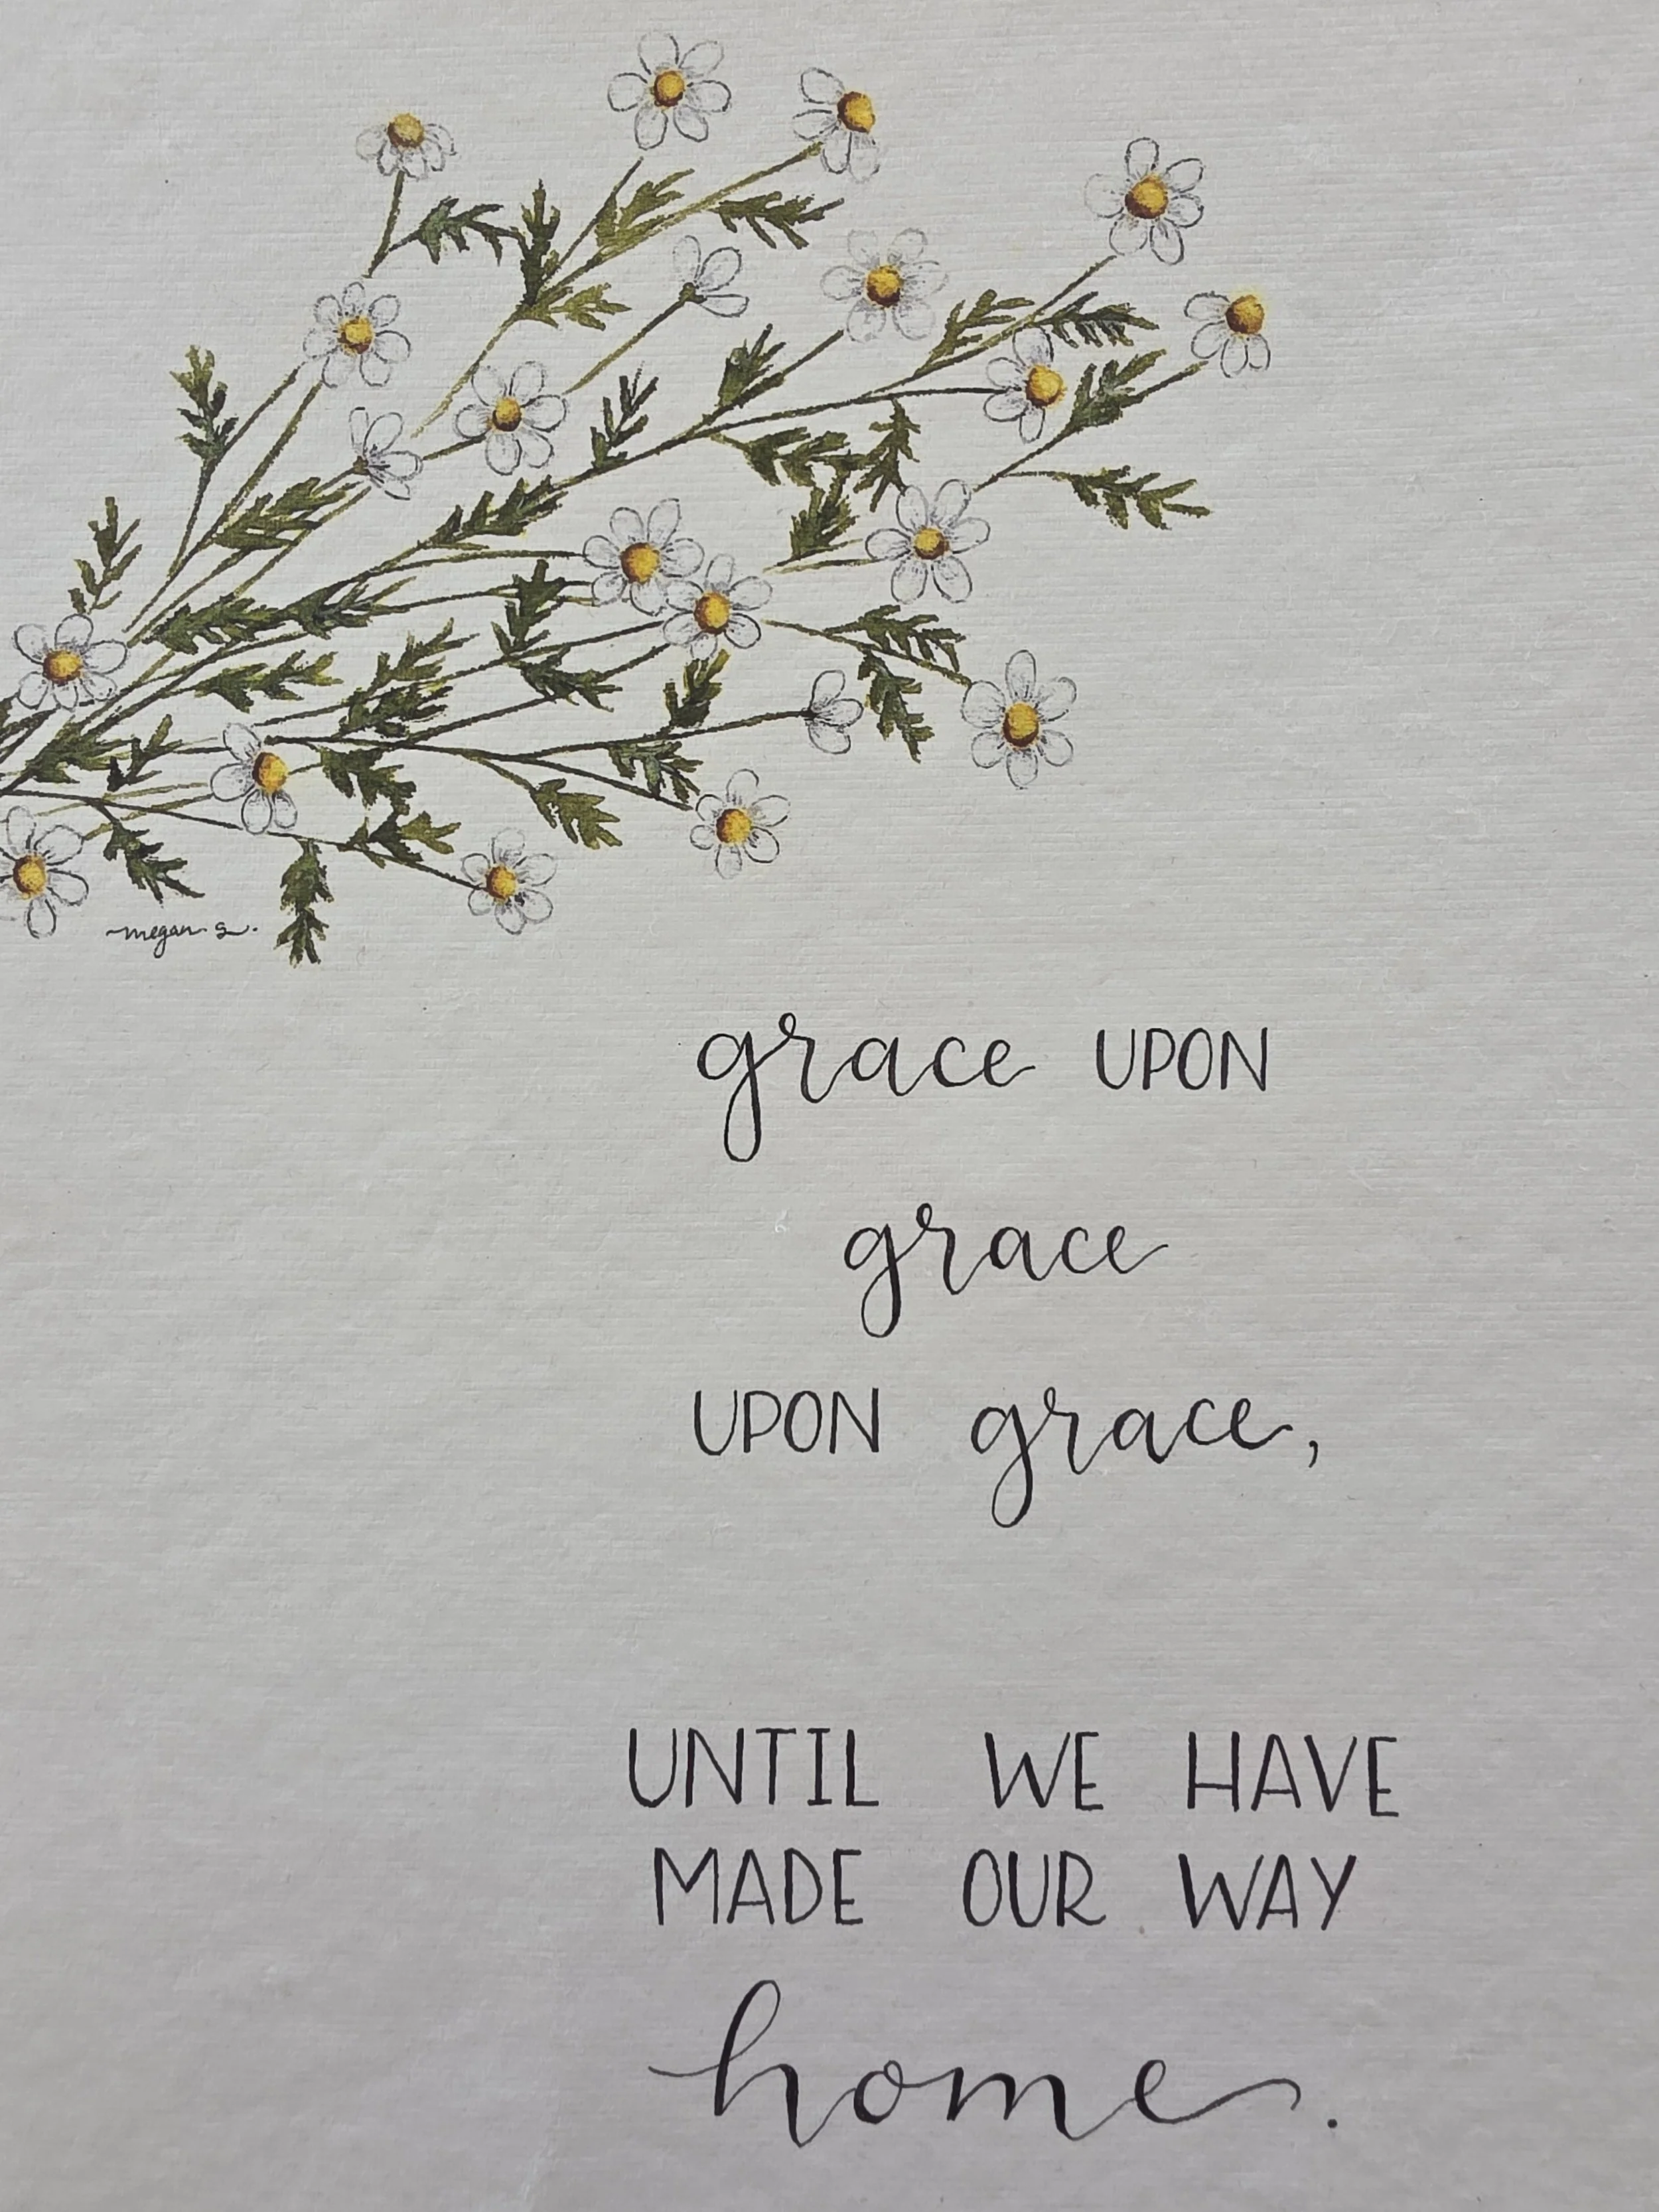 megan s.
grace UPON
grace
UPON grace,
UNTIL WE HAVE
MADE OUR WAY
home.